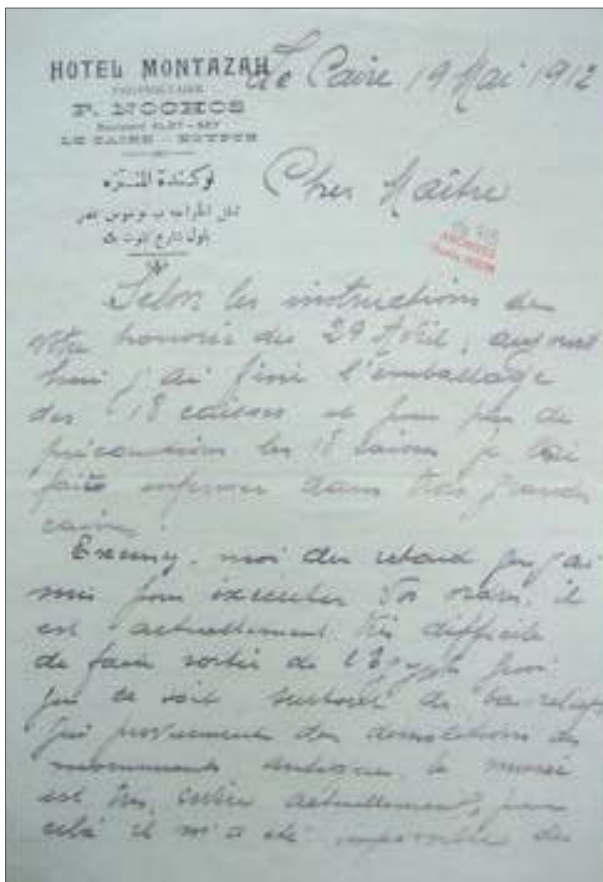 HOTEL MONTAZAH
PROPRIETAIRE
P. NOCHOS
Boulevard CLOT-BEY
LE CAIRE - EGYPTE
لوكندة المنتزه
Le Caire 19 Mai 1912
Cher Maître
ARCHIVES
Selon les instructions de
votre honorée du 29 Avril, aujourd
hui j'ai fini l'emballage
des 18 caisses et pour plus de
précautions les 18 caisses je les ai
faits enfermer dans trois grandes
caisses.
Excusez-moi du retard que j'ai
mis pour exécuter vos ordres, il
est actuellement très difficile
de faire sortir de l'Egypte quoi
que ce soit, surtout de bas reliefs
qui proviennent des démolitions de
monuments antiques, le musée
est très sévère actuellement, pour
cela il m'a été impossible de